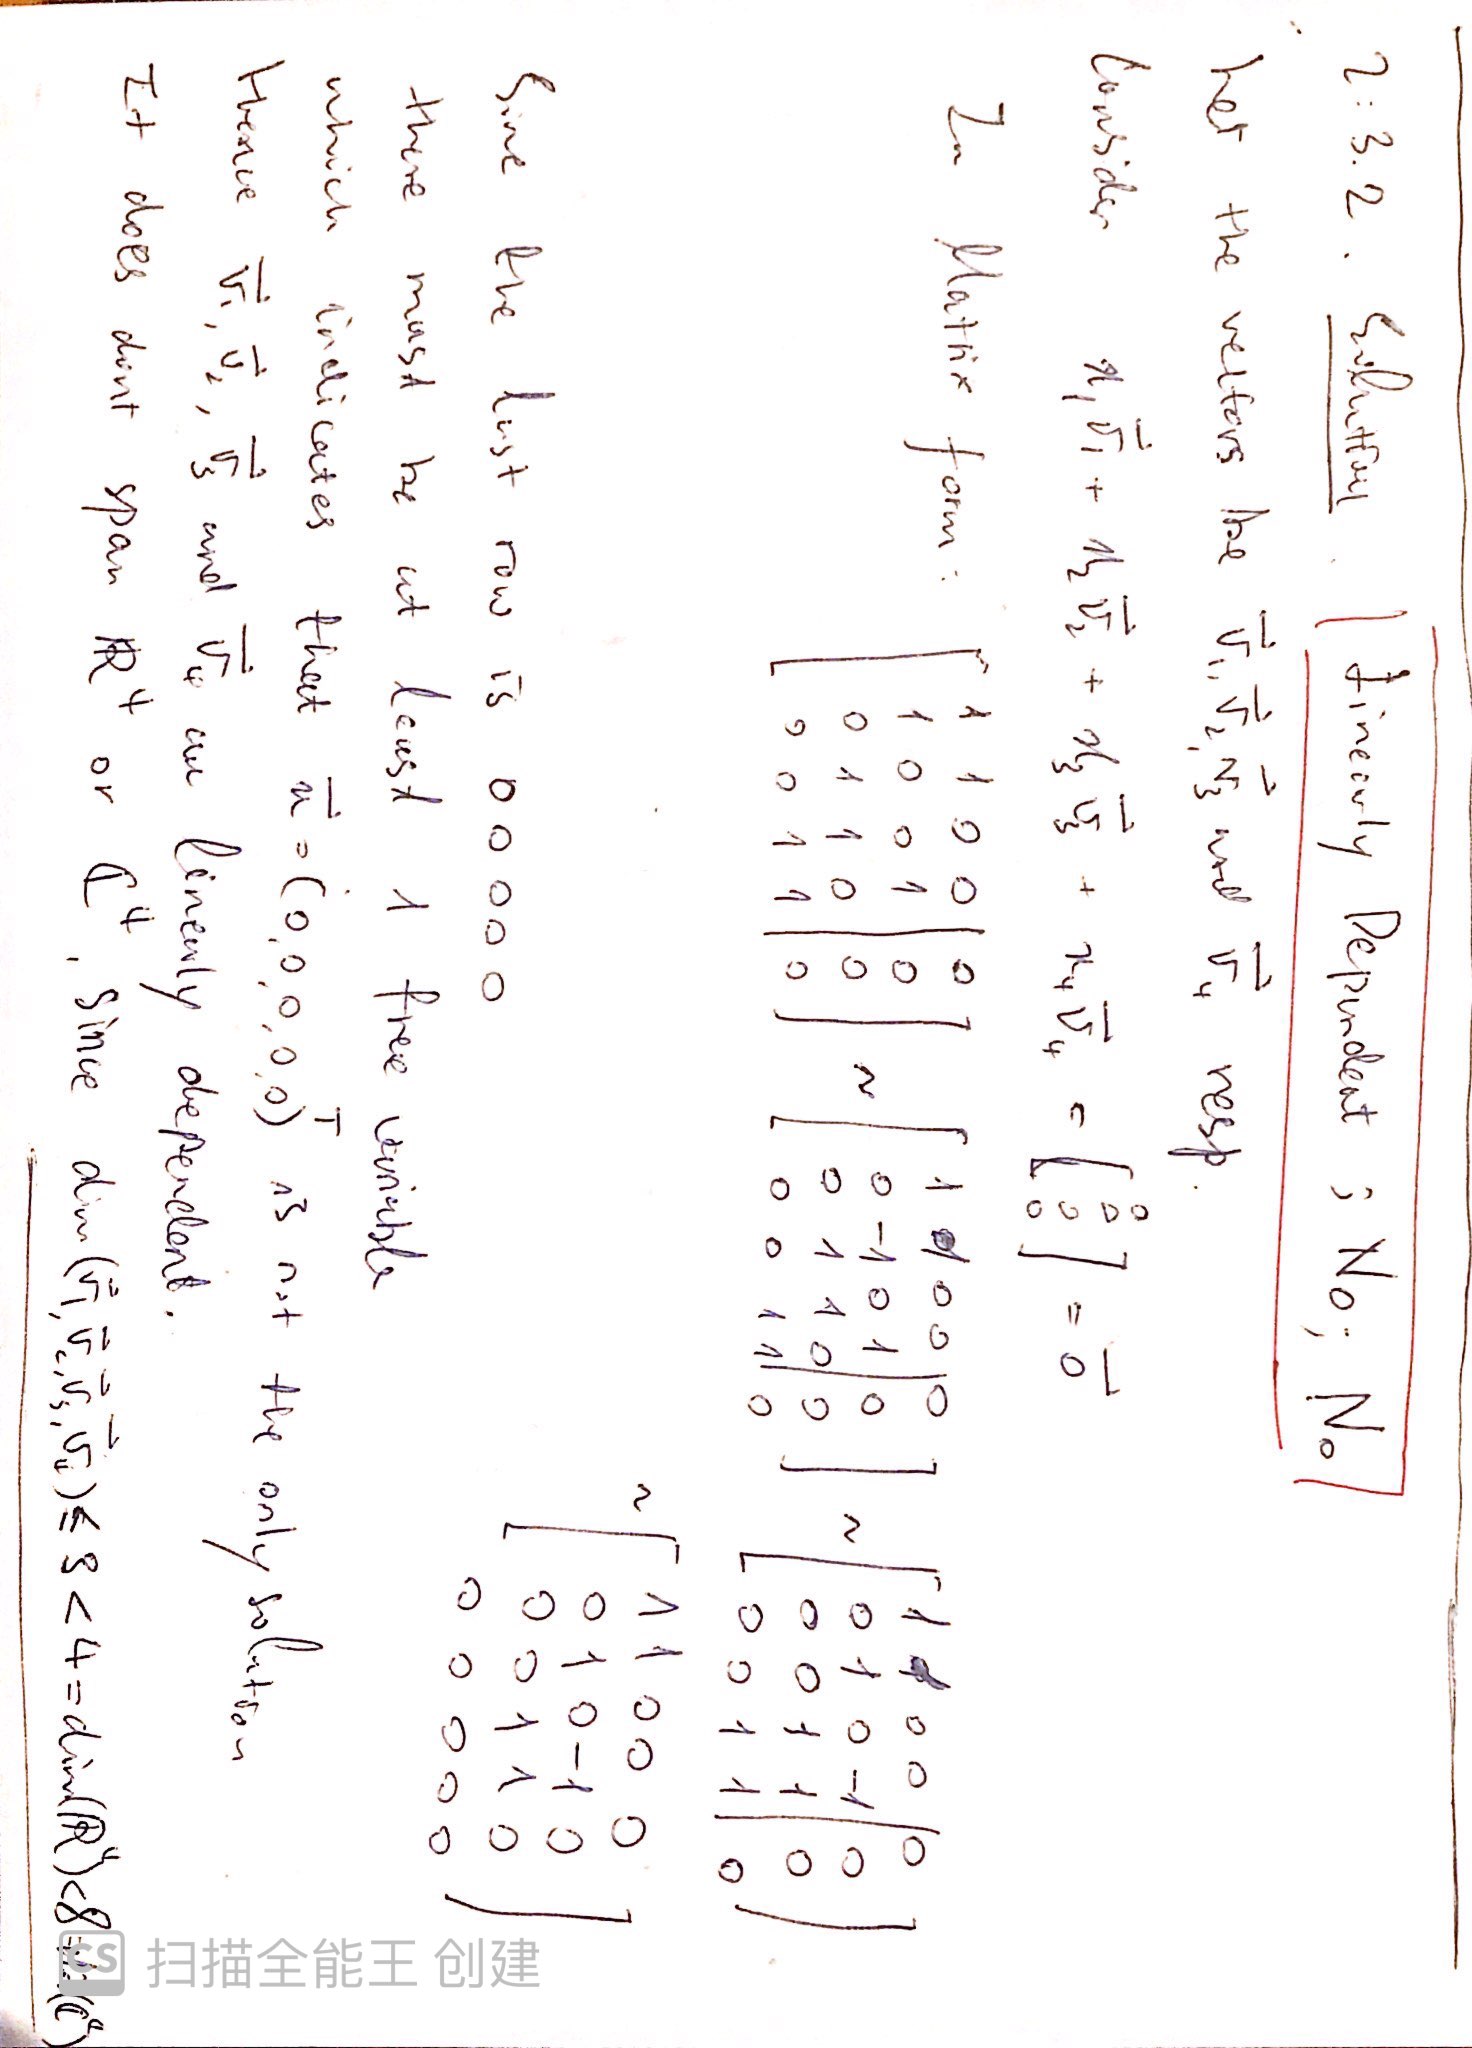 2.3.2. Solution. Linearly Dependent; No; No
Let the vectors be v⃗₁, v⃗₂, v⃗₃ and v⃗₄ resp.
Consider x₁v⃗₁ + x₂v⃗₂ + x₃v⃗₃ + x₄v⃗₄ = [0 0 0 0] = 0⃗
In Matrix form:
[1 1 0 0 | 0
1 0 0 1 | 0
0 1 1 0 | 0
0 0 1 1 | 0]
~ [1 0 0 | 0
0 -1 0 1 | 0
0 1 1 0 | 0
0 0 1 1 | 0]
~ [1 0 0 | 0
0 1 0 -1 | 0
0 0 1 1 | 0
0 0 1 1 | 0]
~ [1 1 0 0 0
0 1 0 -1 0
0 0 1 1 0
0 0 0 0 0]
Sine the last row is 0 0 0 0 0
there must be at least 1 free variable
which indicates that x⃗ = (0, 0, 0, 0)ᵀ is not the only solution
Hence v⃗₁, v⃗₂, v⃗₃ and v⃗₄ are linearly dependent.
It does dont span ℝ⁴ or ℂ⁴, since dim(v⃗₁, v⃗₂, v⃗₃, v⃗₄) ≤ 3 < 4 = dim(ℝ⁴) < 8 = (ℂ⁴)
CS 扫描全能王 创建